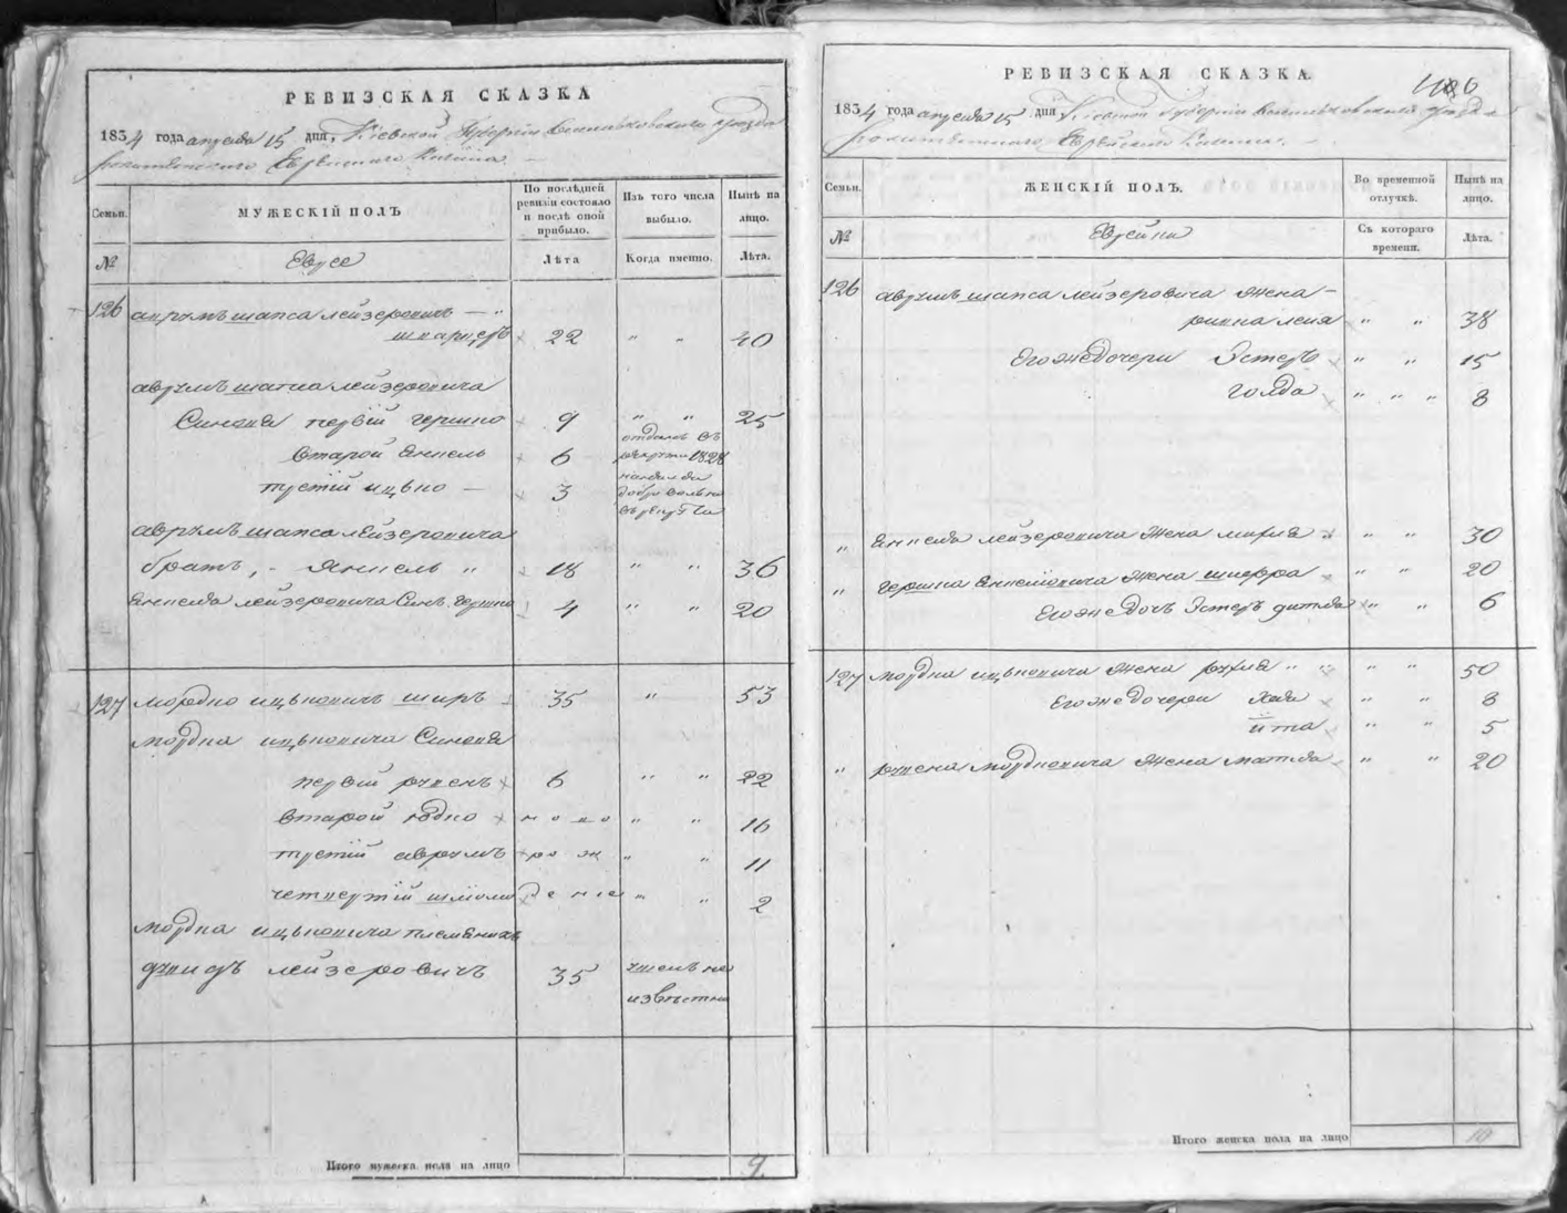 РЕВИЗСКАЯ СКАЗКА
1834 года апреля 15 дня, Кіевской Губерніи Васильковского уезда
Еврейского
Семьи.
МУЖЕСКІЙ ПОЛЪ
По послѣдней ревизіи состояло и послѣ оной прибыло.
Изъ того числа выбыло.
Нынѣ на лицо.
№
Евреє
Лѣта
Когда именно.
Лѣта.
126 аврумъ шапса лейзеровичъ — "
шварцеръ 22 " " 40
аврумъ шапса лейзеровича
Синовя первій гершко 9 " " 25
отданъ въ
второй янкель 6 рекруты 1828
третій ицько — 3 добровольно
аврумъ шапса лейзеровича
братъ, - Янкель " 18 " " 36
янкеля лейзеровича Синъ гершко 4 " " 20
127 мордко ицьковичъ ширъ 35 " 53
мордка ицьковича Синовя
первій рувенъ 6 " " 22
второй юдко ново " " 16
третій аврумъ рож " " 11
четвертій шліома деніе " " 2
мордка ицьковича племяникъ
лейзеровичъ 35
извѣстно
Итого мужеска пола на лицо 9.
РЕВИЗСКАЯ СКАЗКА.
1834 года апреля 15 дня Кіевской Губерніи Васильковскаго уезда
Еврейского
Семьи.
ЖЕНСКІЙ ПОЛЪ.
Во временной отлучкѣ.
Нынѣ на лицо.
№
Еврейки
Съ котораго времени.
Лѣта.
126 аврумъ шапса лейзеровича жена -
ривка лея " " 38
Его же дочери Эстеръ " " 15
голда " " " 8
" янкеля лейзеровича жена мирля " " 30
" гершка янкелевича жена шифра " " 20
Его же дочь Эстеръ " " 6
127 мордка ицьковича жена рухля " " " " 50
Его же дочери хая " " 8
ита " " 5
" рувена мордковича жена " " 20
Итого женска пола на лицо 10